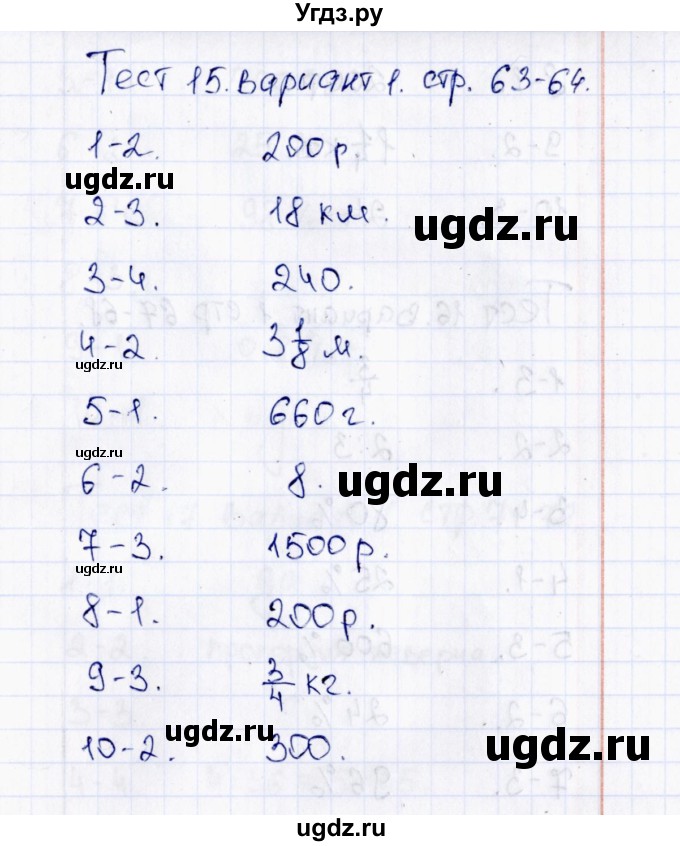 Угдз.ру
Тест 15. Вариант 1. стр. 63-64.
1-2. 200р.
ugdz.ru
2-3. 18 км.
ugdz.ru
3-4. 240.
4-2. 3 1/8 м.
ugdz.ru
5-1. 660г.
ugdz.ru
6-2. 8.
ugdz.ru
7-3. 1500р.
ugdz.ru
8-1. 200р.
9-3. 3/4 кг.
ugdz.ru
10-2. 300.
ugdz.ru
ugdz.ru